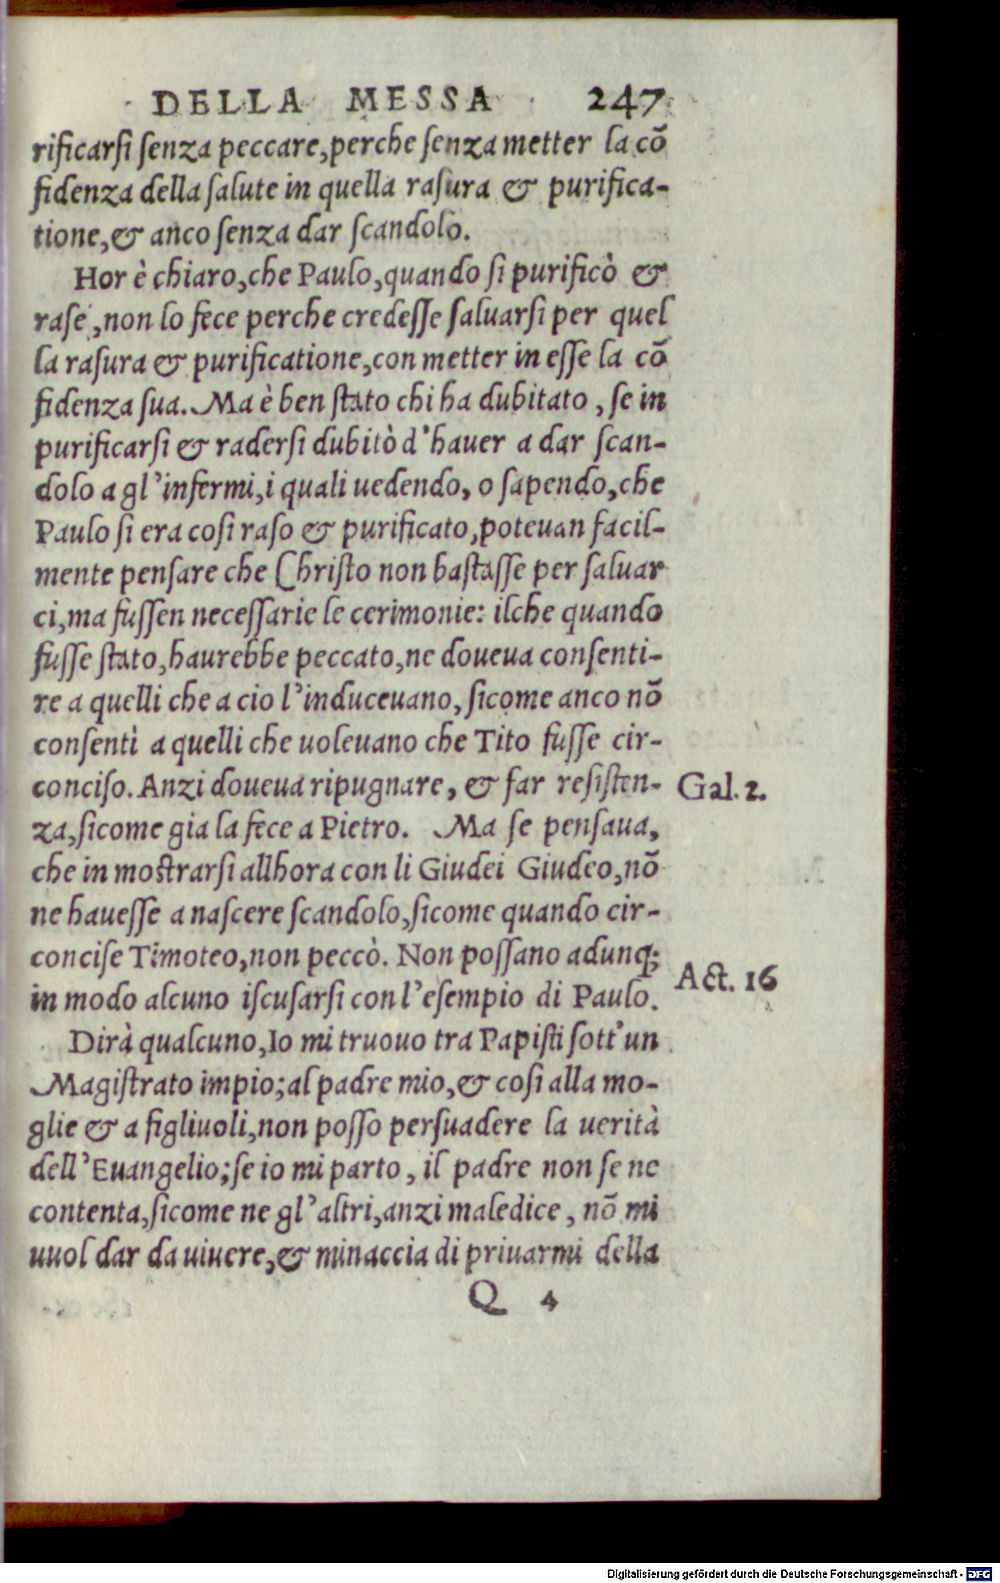 DELLA MESSA 247
rificarsi senza peccare, perche senza metter la cõ
fidenza della salute in quella rasura & purifica-
tione, & anco senza dar scandolo.
Hor è chiaro, che Paulo, quando si purificò &
rase, non lo fece perche credesse saluarsi per quel
la rasura & purificatione, con metter in esse la cõ
fidenza sua. Ma è ben stato chi ha dubitato, se in
purificarsi & radersi dubitò d'hauer a dar scan-
dolo a gl'infermi, i quali uedendo, o sapendo, che
Paulo si era cosi raso & purificato, poteuan facil-
mente pensare che Christo non bastasse per saluar
ci, ma fussen necessarie le cerimonie: ilche quando
fusse stato, haurebbe peccato, ne doueua consenti-
re a quelli che a cio l'induceuano, sicome anco nõ
consentì a quelli che uoleuano che Tito fusse cir-
conciso. Anzi doueua ripugnare, & far resisten- Gal. 2.
za, sicome gia la fece a Pietro. Ma se pensaua,
che in mostrarsi allhora con li Giudei Giudeo, nõ
ne hauesse a nascere scandolo, sicome quando cir-
concise Timoteo, non peccò. Non possano adunq; Act. 16
in modo alcuno iscusarsi con l'esempio di Paulo.
Dirà qualcuno, Io mi truouo tra Papisti sott'un
Magistrato impio; al padre mio, & cosi alla mo-
glie & a figliuoli, non posso persuadere la uerità
dell'Euangelio; se io mi parto, il padre non se ne
contenta, sicome ne gl'altri, anzi maledice, nõ mi
uuol dar da uiuere, & minaccia di priuarmi della
Q 4
Digitalisierung gefördert durch die Deutsche Forschungsgemeinschaft - DFG